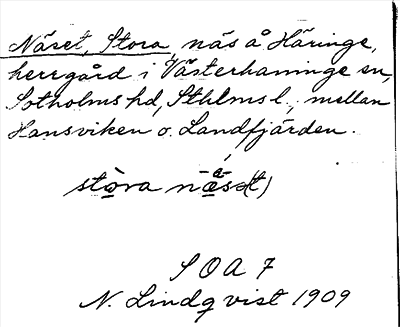 Näset, Stora, näs å Häringe,
herrgård i Västerhaninge sn,
Sotholms hd, Sthlms l., mellan
Hansviken o. Landfjärden.
stòra nä́se(t)
S O A 7
N. Lindqvist 1909